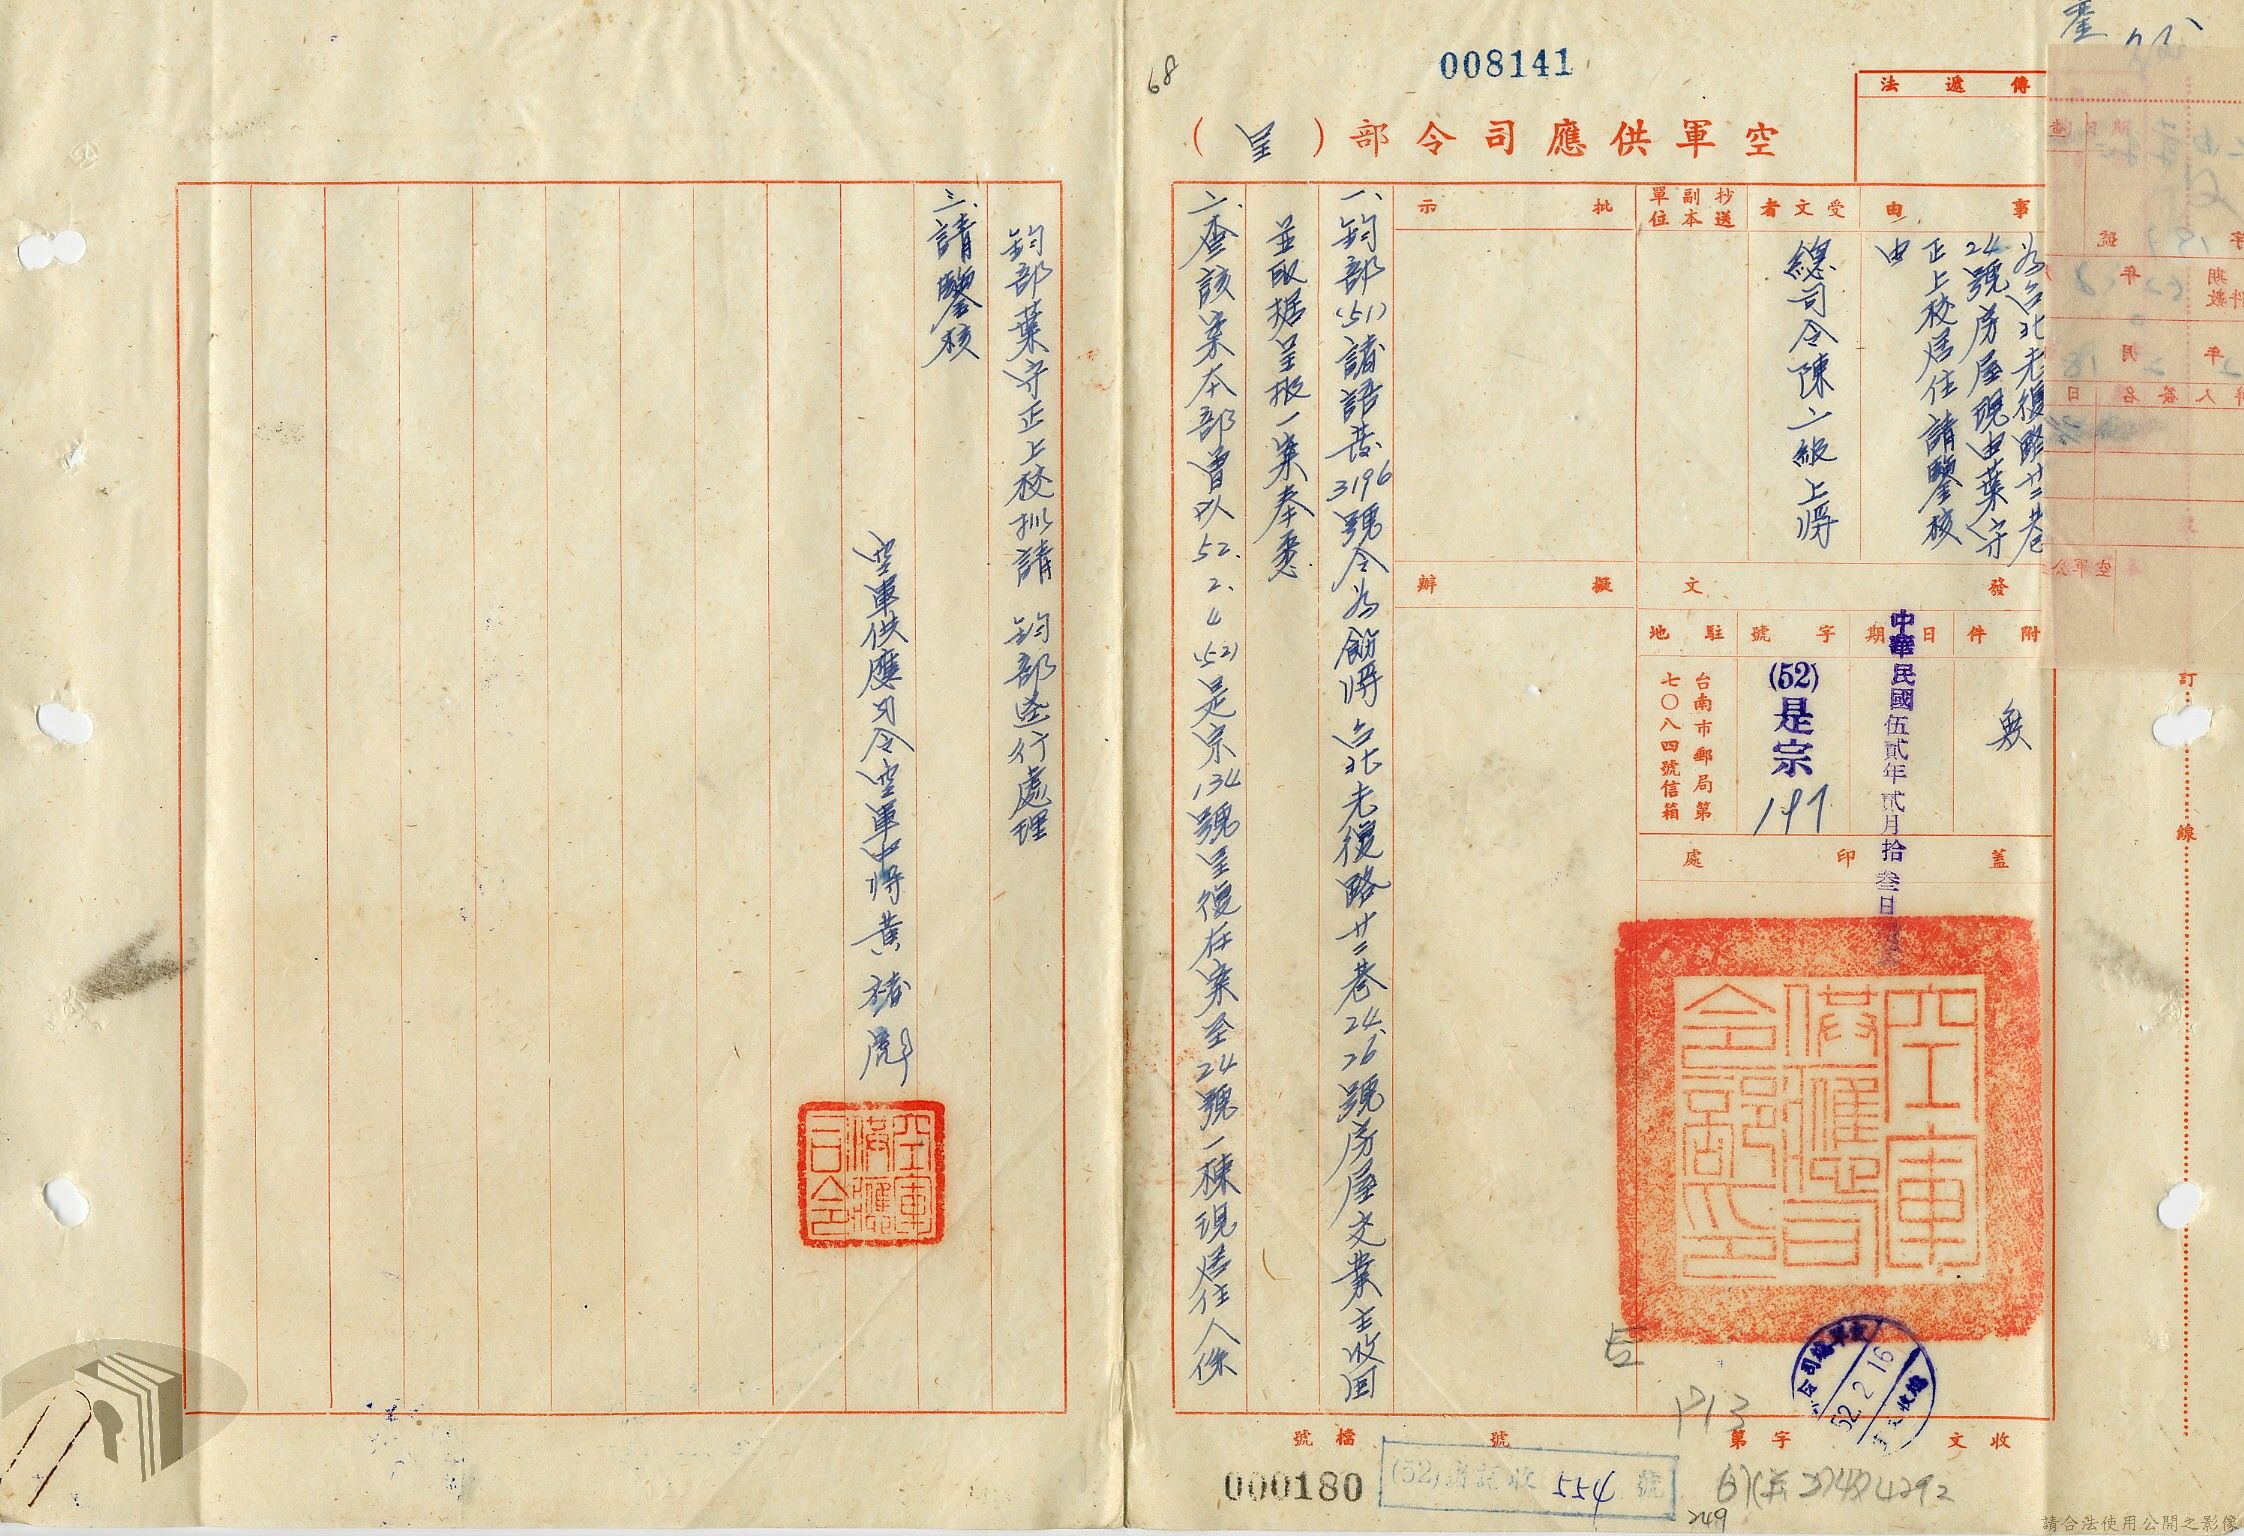 008141
68
傳遞法
空軍供應司令部（呈）
事由
為台北光復路廿二巷
24號房屋現由葉守
正上校居住請鑒核
由
受文者
總司令陳二級上將
抄送副本單位
批示
擬辦
發文
附件
無
日期
中華民國伍貳年貳月拾叁日
字號
(52)
是宗
197
駐地
台南市郵局第
七〇八四號信箱
蓋印處
空軍供應司令部印
一、鈞部(51)諸語發3196號令為飭將台北光復路廿二巷24、26號房屋交業主收回
並取据呈报一案奉悉
二、查該案本部曾以52.2.4(52)是宗134號呈復在案至24號一棟現居住人係
鈞部葉守正上校擬請 鈞部逕行處理
三、請鑒核
空軍供應司令空軍中將黃
空軍供應司令
訂
線
52.2.16
收文
字第
號
檔號
000180
554
號
249
請合法使用公開之影像